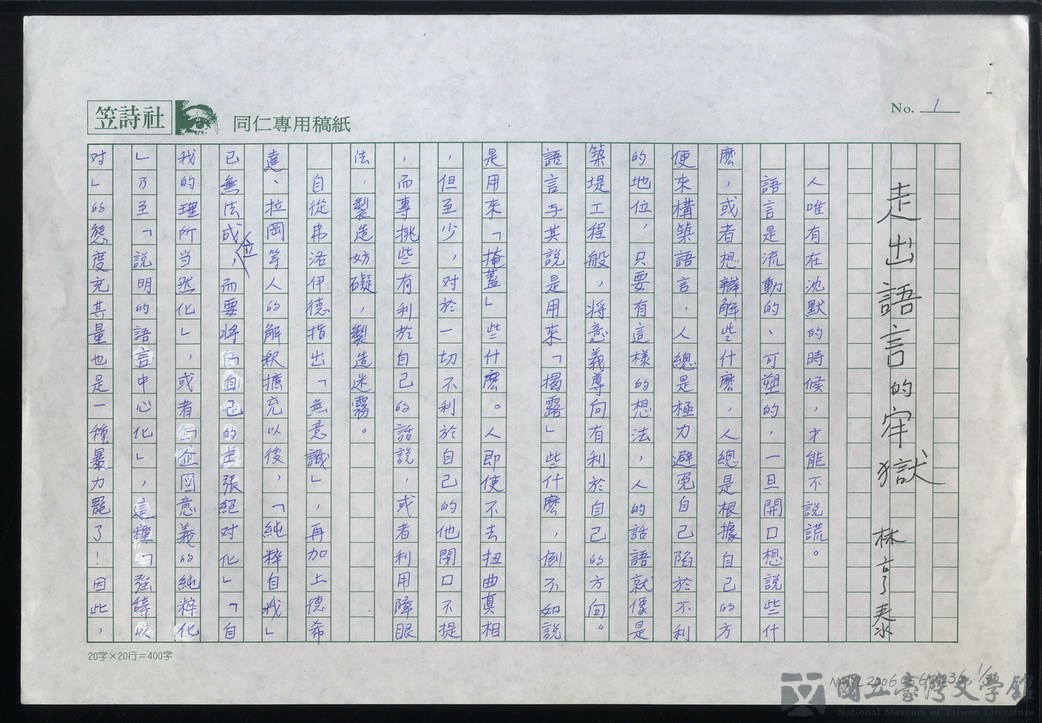 笠詩社
同仁專用稿紙
No. 1
走出語言的牢獄　林亨泰
人唯有在沈默的時候，才能不說謊。
語言是流動的、可塑的，一旦開口想說些什
麽，或者想辯解些什麽，人總是根據自己的方
便來構築語言，人總是極力避免自己陷於不利
的地位，只要有這樣的想法，人的話語就像是
築堤工程般，將意義導向有利於自己的方向。
語言与其說是用來「揭露」些什麽，倒不如說
是用來「掩蓋」些什麽。人即使不去扭曲真相
，但至少，对於一切不利於自己的他閉口不提
，而專挑些有利於自己的話說，或者利用障眼
法，製造妨礙，製造迷霧。
自從弗洛伊德指出「無意識」，再加上德希
達、拉岡等人的解釈擴充以後，「純粹自我」
已無法成位，而要將「自己的主張絕对化」「自
我的理所当然化」，或者「企図意義的純粹化
」乃至「說明的語言中心化」，這種「強辞以
对」的態度充其量也是一種暴力罷了！因此，
20字×20行＝400字
國立臺灣文學館
National Museum of Taiwan Literature